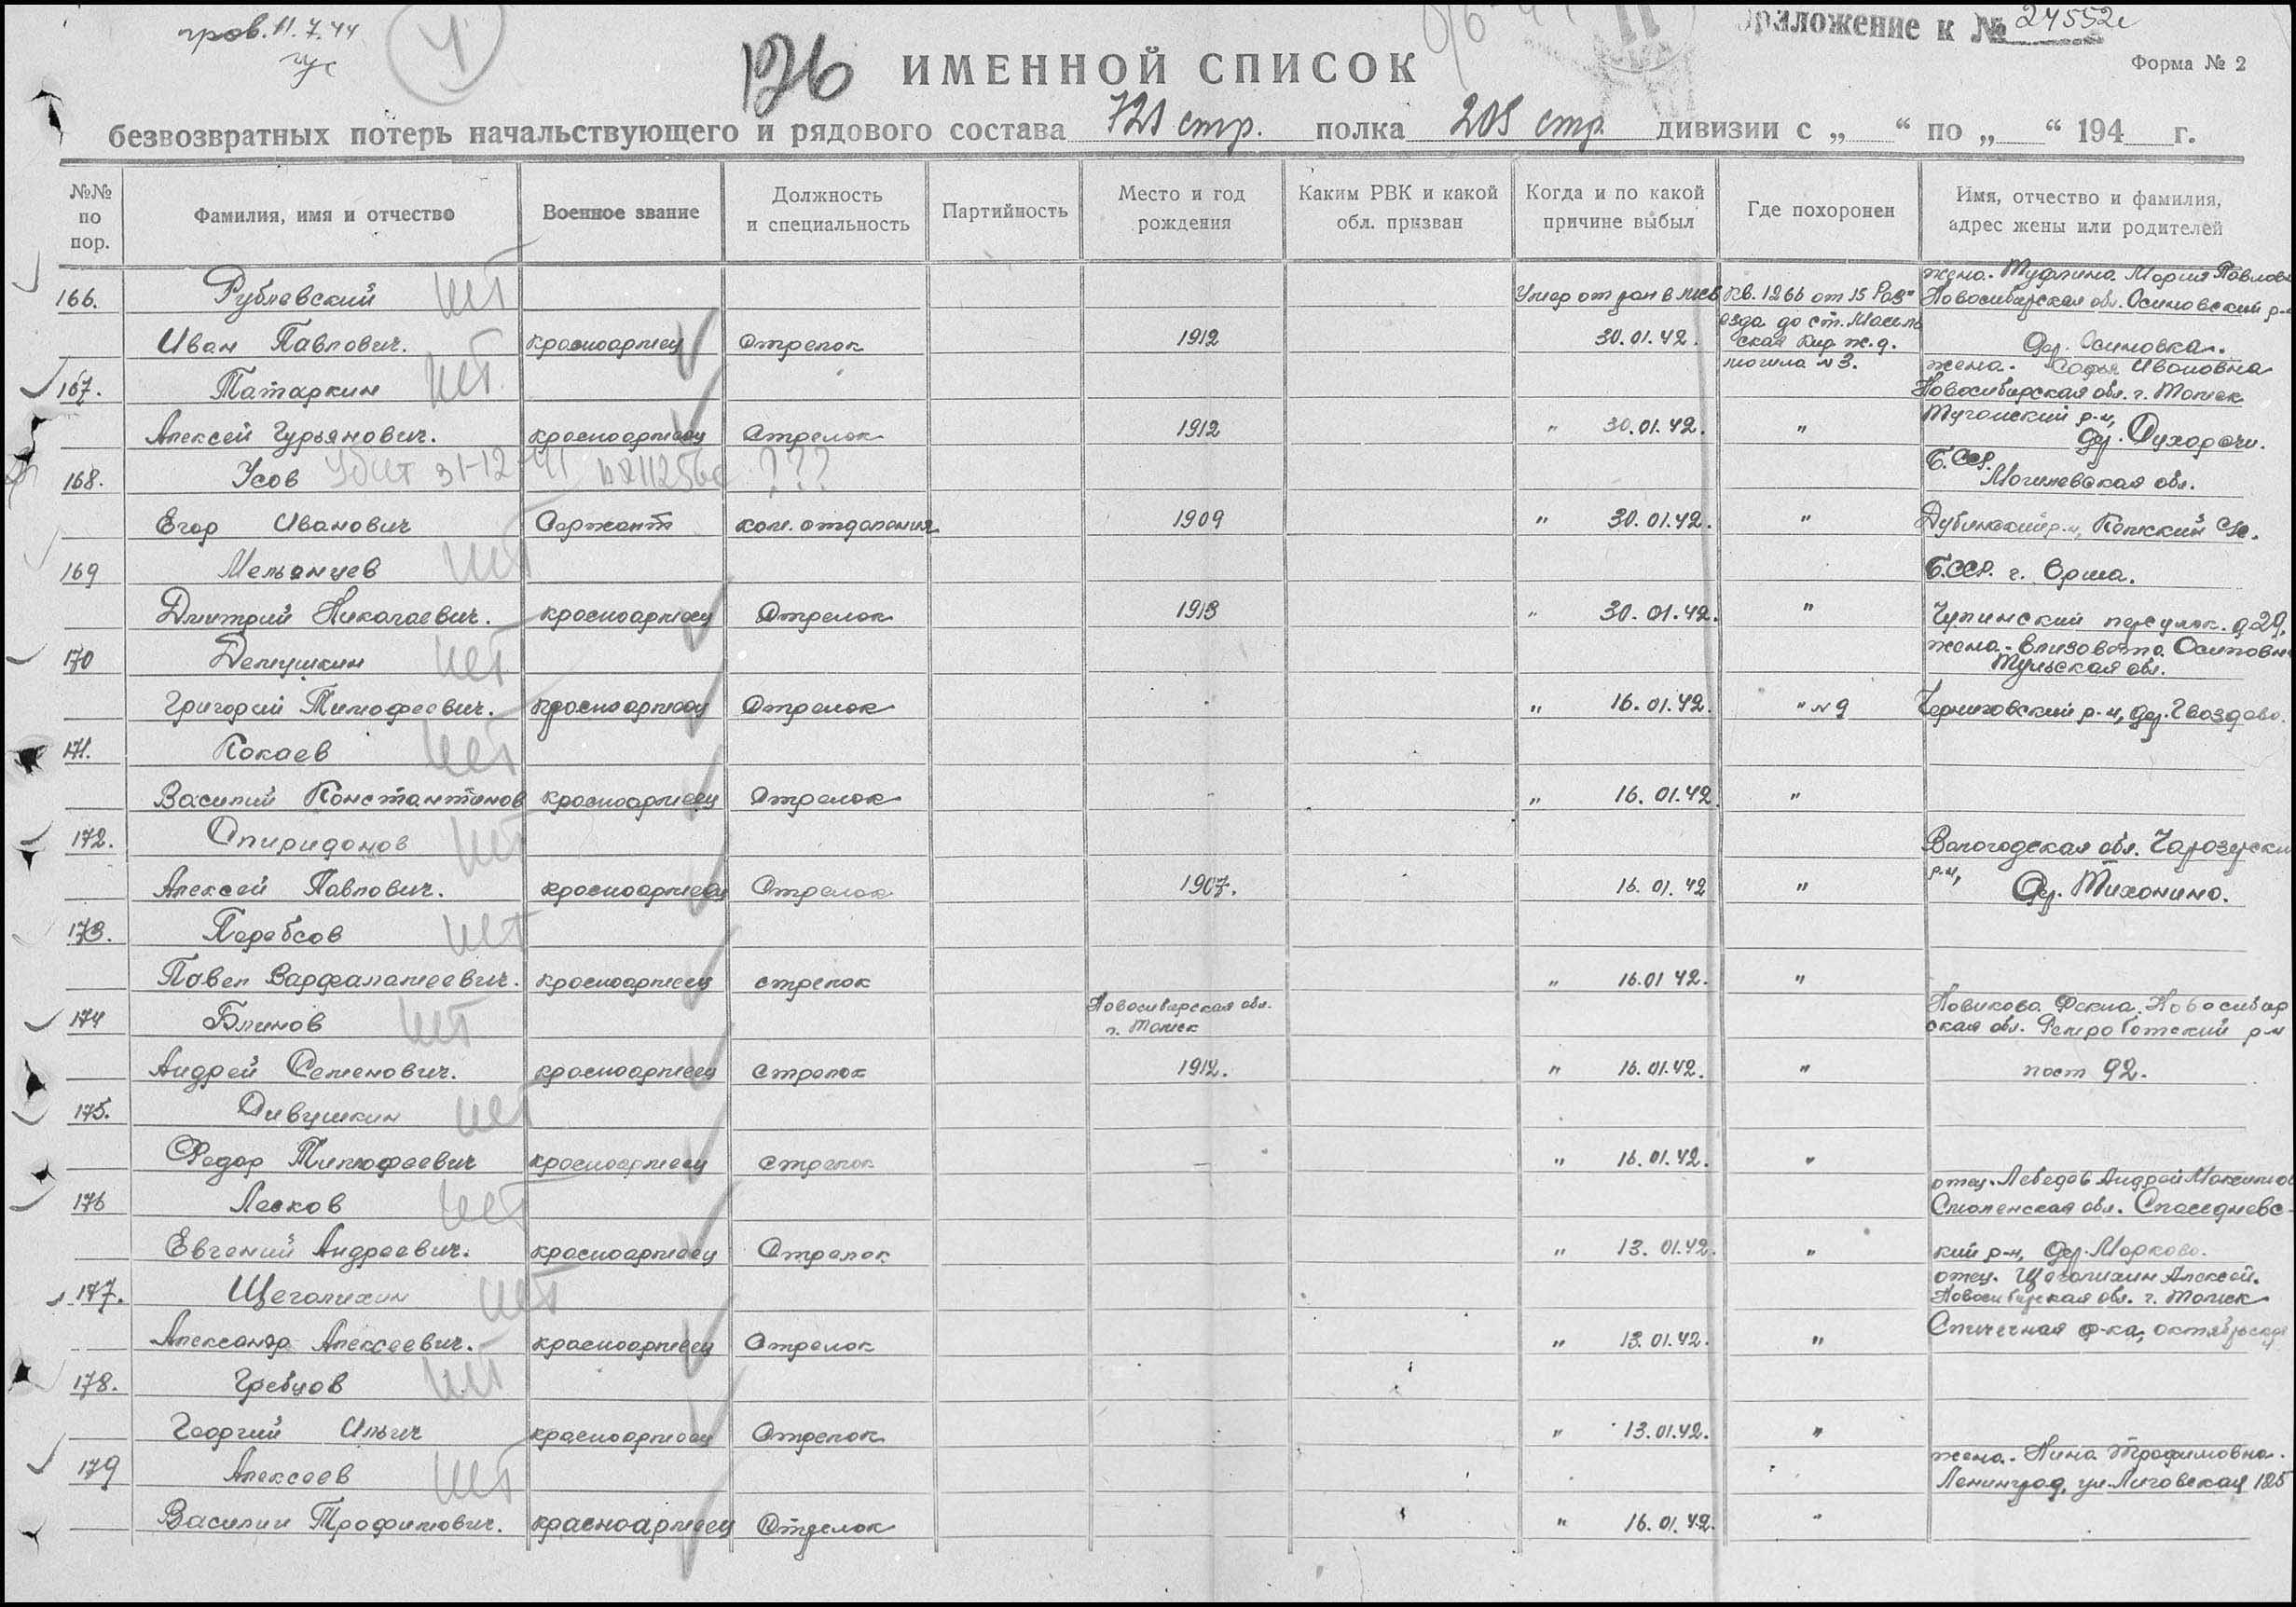 пров. 11.7.44
4
126
Приложение к № 24552с
Форма № 2
ИМЕННОЙ СПИСОК
безвозвратных потерь начальствующего и рядового состава 721 стр. полка 205 стр. дивизии с „ “ по „ “ 194 г.
№№ по пор.
Фамилия, имя и отчество
Военное звание
Должность и специальность
Партийность
Место и год рождения
Каким РВК и какой обл. призван
Когда и по какой причине выбыл
Где похоронен
Имя, отчество и фамилия, адрес жены или родителей
166. Рублевский нет Умер от ран в мсб Кв. 1266 от 15 Раз- жена. Туфлина Мария Павловн Новосибирская обл. Осиновский р-н
Иван Павлович. красноармеец Стрелок 1912 30.01.42. езда до ст. Масель ская Кир. ж.д. могила №3. дер. Осиновка.
167. Татаркин нет жена. Софья Ивановна Новосибирская обл. г. Томск
Алексей Гурьянович. красноармеец Стрелок 1912 " 30.01.42. " р-н, дер.
168. Усов Убит 31-12-41 ??? Б.ССР. Могилевская обл.
Егор Иванович Сержант ком. отделения 1909 " 30.01.42. "
169 Мельянцев нет Б.ССР. г. Орша.
Дмитрий Николаевич. красноармеец Стрелок 1913 " 30.01.42. " Чупинский переулок. д 29,
170 Демушкин нет жена. Елизавета Осиповн Тульская обл.
Григорий Тимофеевич. красноармеец Стрелок " 16.01.42. " №9 р-н, дер. Гвоздево.
171. Кокаев нет
Василий Константинов красноармеец Стрелок " 16.01.42 "
172. Спиридонов нет Вологодская обл. Чарозерски
Алексей Павлович. красноармеец Стрелок 1907. 16.01.42 " р-н, дер. Тихонино.
173. нет
Павел Варфаламеевич. красноармеец стрелок " 16.01 42. "
174 Блинов нет Новосибирская обл. г. Томск Новикова Фекла. Новосибир ская обл. р-н
Андрей Семенович. красноармеец Стрелок 1912. " 16.01.42. " пост 92.
175. Дивушкин нет
Федор Тимофеевич красноармеец Стрелок — " 16.01.42. "
176 Лесков нет отец. Лебедев Андрей Максимов Смоленская обл.
Евгений Андреевич. красноармеец Стрелок " 13.01.42. " кий р-н, дер. Марково.
177. Щеголихин нет отец. Щеголихин Алексей. Новосибирская обл. г. Томск
Александр Алексеевич. красноармеец Стрелок " 13.01.42. " Спичечная ф-ка, октябрьская
178. Гребцов нет
Георгий Ильич красноармеец Стрелок " 13.01.42. "
179 Алексеев нет жена. Нина Трофимовна. Ленинград, ул. Лиговская 125
Василий Трофимович. красноармеец Стрелок " 16.01.42. "